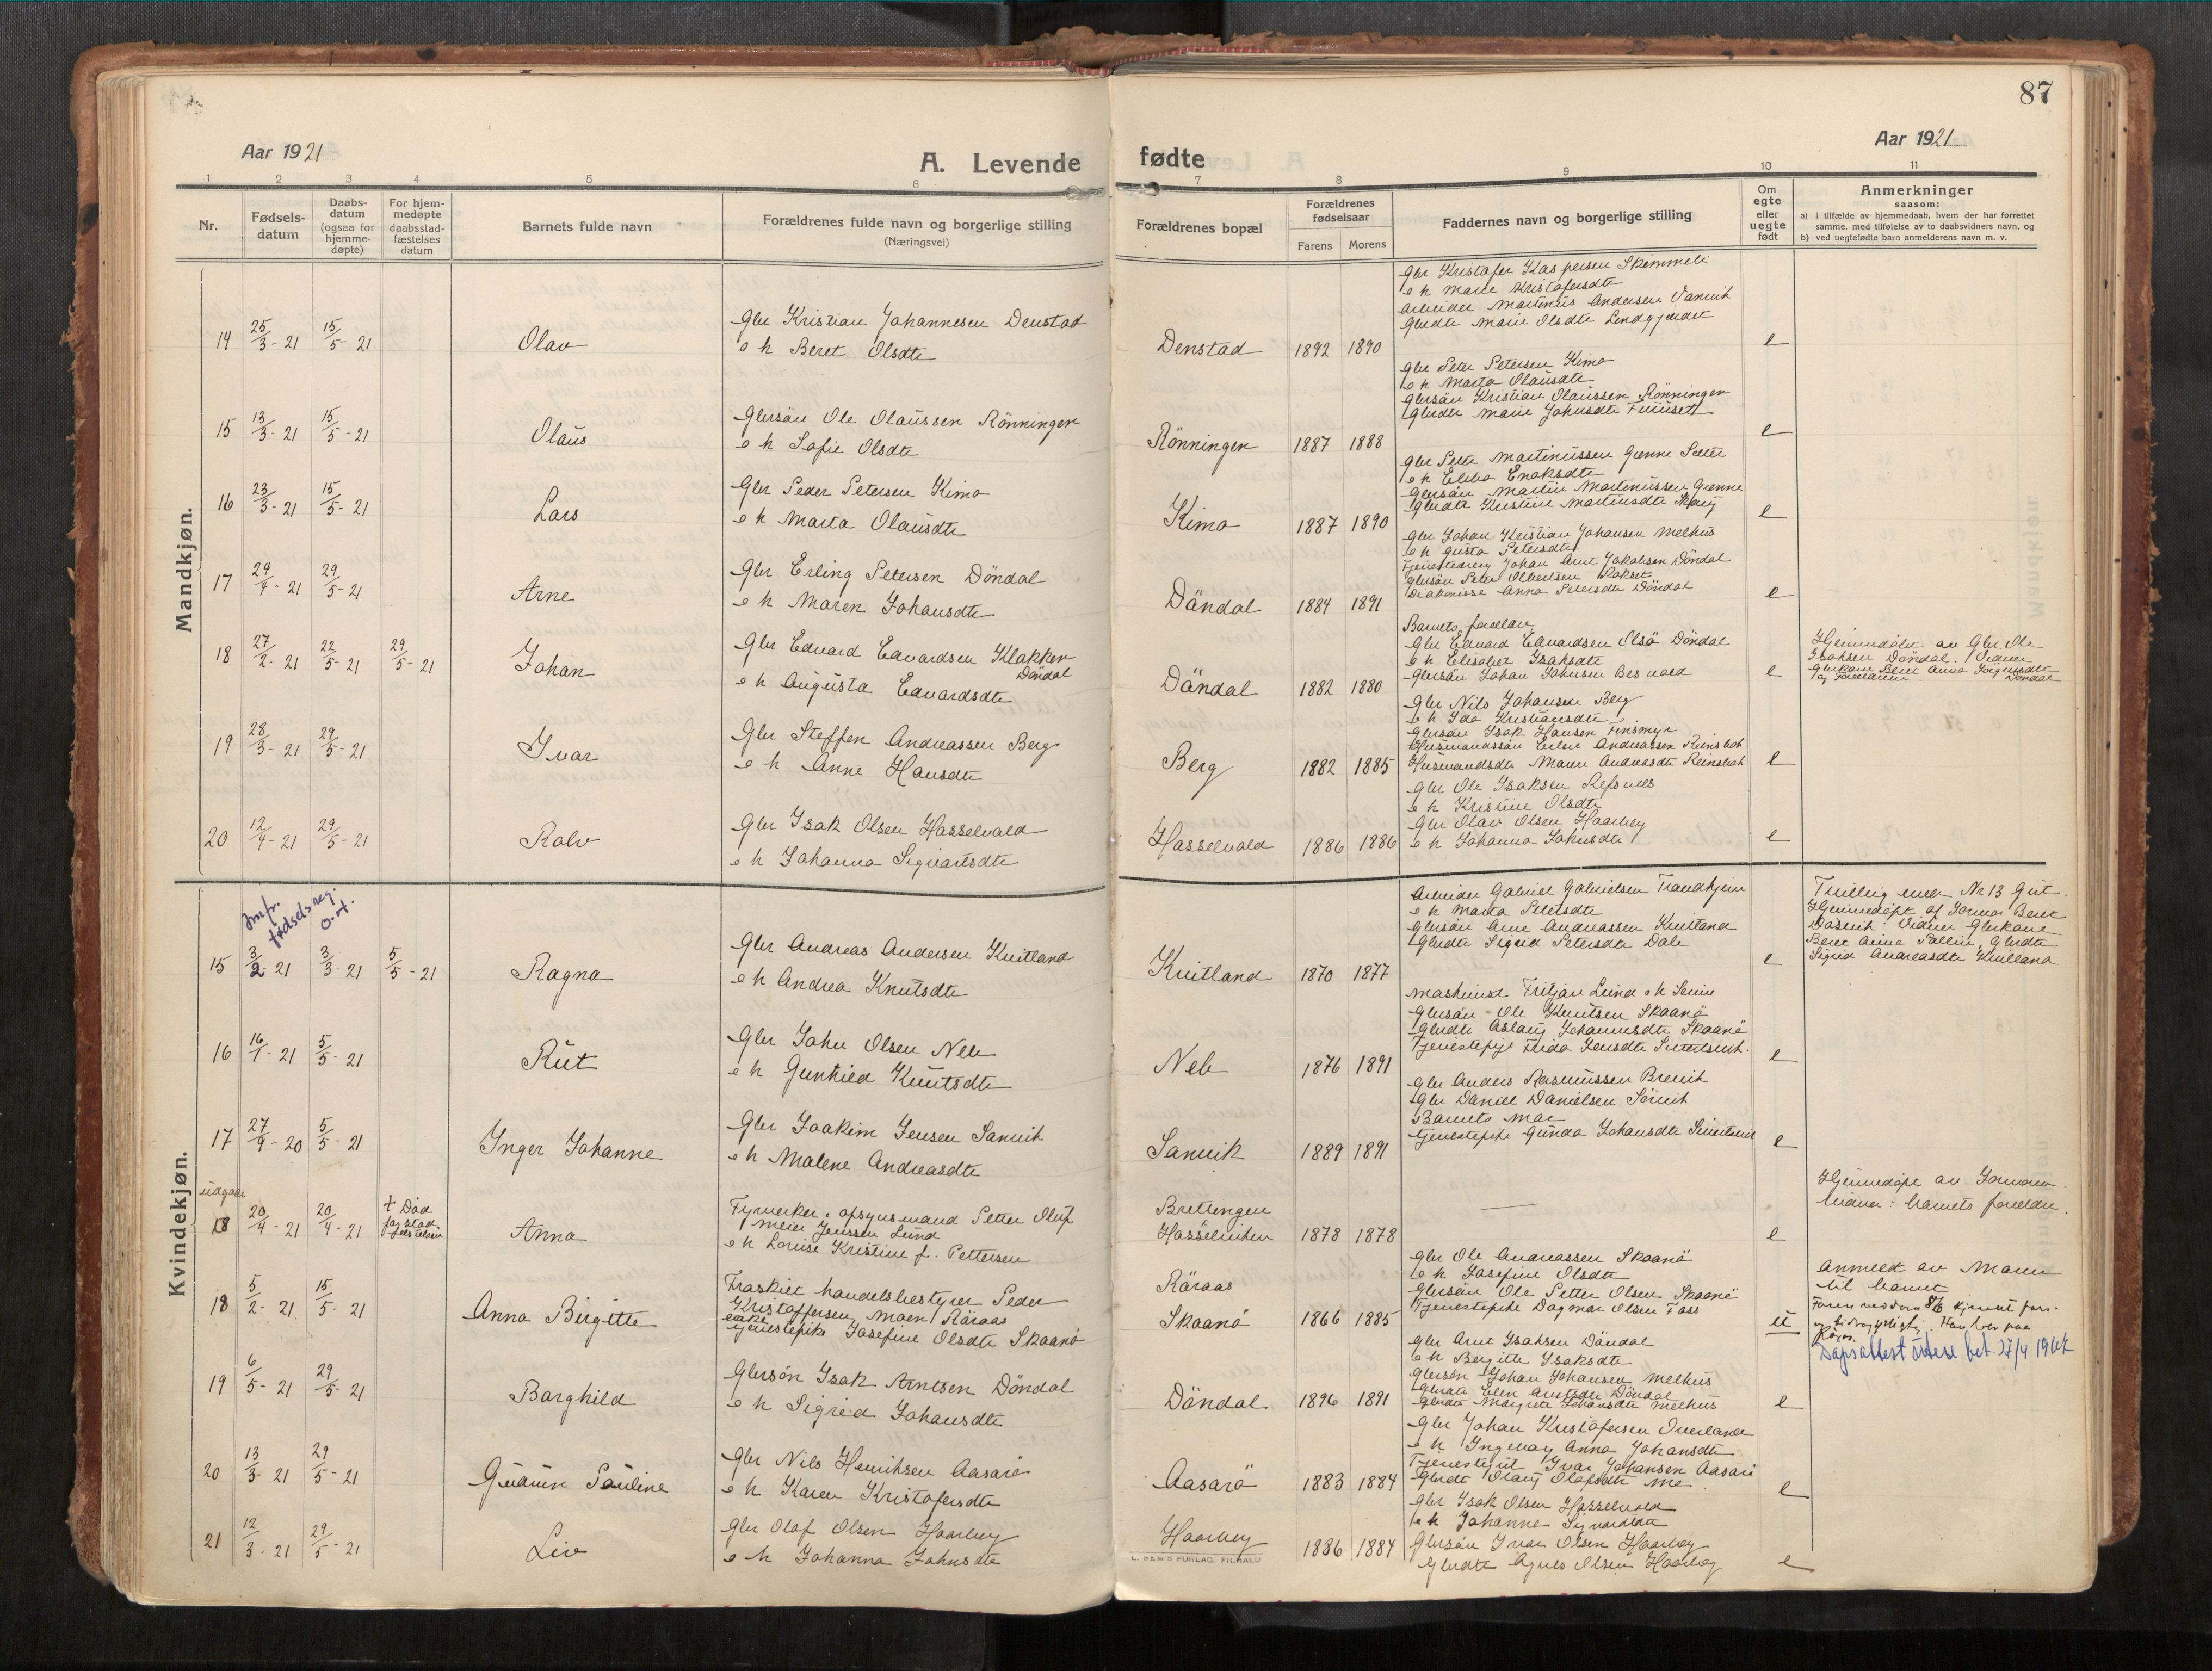 87
Aar 1921
A. Levende fødte
Aar 1921
1 2 3 4 5 6 7 8 9 10 11
Nr.
Fødsels-
datum
Daabs-
datum
(ogsaa for
hjemme-
døpte)
For hjem-
medøpte
daabsstad-
fæstelses
datum
Barnets fulde navn
Forældrenes fulde navn og borgerlige stilling
(Næringsvei)
Forældrenes bopæl
Forældrenes
fødselsaar
Farens Morens
Faddernes navn og borgerlige stilling
Om
egte
eller
uegte
født
Anmerkninger
saasom:
a) i tilfælde av hjemmedaab, hvem der har forrettet
samme, med tilføielse av to daabsvidners navn, og
b) ved uegtefødte barn anmelderens navn m. v.
Mandkjøn.
14 25/3-21 15/5-21 Olav
Gbr Kristian Johannesen Denstad
e h Beret Olsdtr
Denstad 1892 1890
Gbr Kristofer Kaspersen
e h Marie Kristofersdtr
Arbeider Martinus Andersen
Gbrdtr Marie Olsdtr
e
15 13/3-21 15/5-21 Olaus
Gbrsön Ole Olaussen Rönningen
e h Sofie Olsdtr
Rönningen 1887 1888
Gbr Peter Petersen Kimo
e h Marta Olausdtr
Gbrsön Kristian Olaussen Rönningen
Gbrdtr Marie Johnsdtr
e
16 23/3-21 15/5-21 Lars
Gbr Peder Petersen Kimo
e h Marta Olausdtr
Kimo 1887 1890
Gbr Petter Martinussen Grenne
e h Ebba Enoksdtr
Gbrsön Martin Martinussen Grenne
Gbrdtr Kristine Martinsdtr
e
17 24/4-21 29/5-21 Arne
Gbr Erling Petersen Döndal
e h Maren Johansdtr
Döndal 1884 1891
Gbr Johan Kristian Johansen Melhus
e h Gusta Petersdtr
Tjenestedreng Johan Arnt Jakobsen Döndal
Gbrsön Peter Olbertsen Rokset
Diakonisse Anna Petersdtr Döndal
e
18 27/2-21 22/5-21 29/5-21 Johan
Gbr Edvard Edvardsen Klakken
Döndal
e h Augusta Edvardsdtr
Döndal 1882 1880
Barnets foreldre
Gbr Edvard Edvardsen Elsö Döndal
e h Elisabet Isaksdtr
Gbrsön Johan Johnsen
e
Hjemmedöbt av Gbr. Ole
Isaksen Döndal. Vidner
Gbrkone Beret Anna Jörgensdtr
og Forældrene. Döndal
19 28/3-21 29/5-21 Ivar
Gbr Steffen Andreassen Berg
e h Anne Hansdtr
Berg 1882 1885
Gbr Nils Johansen Berg
e h Ida Kristiansdtr
Gbrsön Isak Hansen Finsmyr
Husmandssön Andreassen
Husmandsdtr Maren Andreasdtr
e
20 12/4-21 29/5-21 Rolv
Gbr Isak Olsen Hasselvald
e h Johanna Sigvartsdtr
Hasselvald 1886 1886
Gbr Ole Isaksen
e h Kristine Olsdtr
Gbr Olav Olsen Haarberg
e h Johanna Johnsdtr
e
Kvindekjøn.
Jmfr. fødselsreg. o.d.
15 3/2-21 3/3-21 5/5-21 Ragna
Gbr Andreas Andersen Kvitland
e h Andrea Knutsdtr
Kvitland 1870 1877
Arbeider Gabriel Gabrielsen Trondhjem
e h Marta Petersdtr
Gbrsön Arne Andreassen Kvitland
Gbrdtr Sigrid Petersdtr Dale
e
Tvilling med Nr 13 Gut.
Hjemmedöpt af Jormor Beret
Vidner Gbrkone
Beret Anna, Gbrdtr
Sigrid Andreasdtr Kvitland
16 16/1-21 5/5-21 Rut
Gbr John Olsen Neb
e h Gunhild Knutsdtr
Neb 1876 1891
Maskinist Fritjan Lund e h
Gbrsön Ole Knutsen Skaanö
Gbrdtr Aslaug Johannesdtr Skaanö
Tjenestepige Frida Jensdtr
e
17 27/9-20 5/5-21 Inger Johanne
Gbr Joakim Jensen Sanvik
e h Malene Andreasdtr
Sanvik 1889 1891
Gbr Anders Rasmussen Brevik
Gbr Daniel Danielsen Sörvik
Barnets mor
Tjenestepike Gunda Johansdtr
e
udgaar
18 20/4-21 20/4-21
+ Död
før stad-
festelsen
Anna
Fyrverker, opsynsmand Petter Oluf
Meier Jenssen Lund
e h Lovise Kristine f. Pettersen
Brettingen
Hasselvika
1878 1878
—
e
Hjemmedöpt av Jormoren
Vidner: barnets foreldre.
18 5/2-21 15/5-21 Anna Birgitte
Fraskilt handelsbestyrer Peder
Kristoffersen Moen Röraas
tjenestepike Josefine Olsdtr Skaanö
Röraas
Skaanö
1866 1885
Gbr Ole Andreassen Skaanö
e h Josefine Olsdtr
Gbrsön Ole Petter Olsen Skaanö
Tjenestepike Dagmar Olsen Foss
u
Anmeldt av Moren
til barnet
Faren ved dom
og bidragspligtig. Han bor paa
Röros.
Dåpsattest utsted 27/4 1962
19 6/5-21 29/5-21 Borghild
Gbrsön Isak Arntsen Döndal
e h Sigrid Johansdtr
Döndal 1896 1891
Gbr Arnt Isaksen Döndal
e h Bergitte Isaksdtr
Gbrsön Johan Johansen Melhus
Gbrdtr Elen Arntsdtr Döndal
Gbrdtr Margrete Johansdtr Melhus
e
20 13/3-21 29/5-21 Gudrun Pauline
Gbr Nils Henriksen Aasarö
e h Karen Kristofersdtr
Aasarö 1883 1884
Gbr Johan Kristofersen Overland
e h Ingeborg Anna Johansdtr
Tjenestegut Ivar Johansen Aasarö
Gbrdtr Olaug Olafsdtr Mo
e
21 12/3-21 29/5-21 Liv
Gbr Olaf Olsen Haarberg
e h Johanna Johnsdtr
Haarberg 1886 1884
Gbr Isak Olsen Hasselvald
e h Johanna Sigvardsdtr
Gbrsön Ivar Olsen Haarberg
Gbrdtr Agnes Olsen Haarberg
e
E. SEM'S FORLAG, FR.HALD